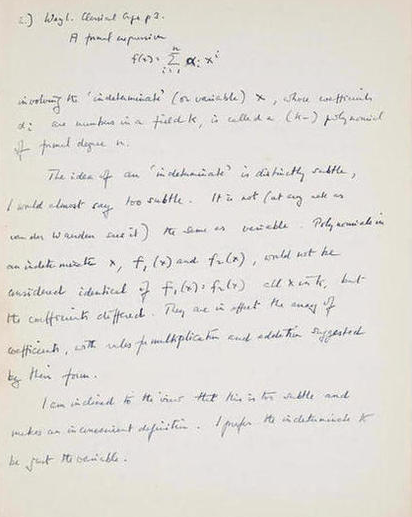 2.) Weyl. Classical Gps p 3.
A formal expression
f(x) = n Σ i=1 αi x^i
involving the 'indeterminate' (or variable) x, whose coefficients
αi are numbers in a field k, is called a (k-) polynomial
of formal degree n.
The idea of an 'indeterminate' is distinctly subtle,
I would almost say too subtle. It is not (at any rate as
van der Waerden sees it) the same as variable. Polynomials in
an indeterminate x, f1(x) and f2(x), would not be
considered identical if f1(x) = f2(x) all x in k, but
the coefficients differed. They are in effect the array of
coefficients, with rules for multiplication and addition suggested
by their form.
I am inclined to the view that this is too subtle and
makes an inconvenient definition. I prefer the indeterminate to
be just the variable.